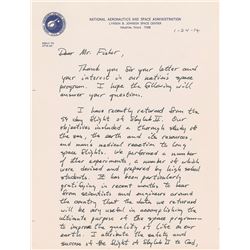 NATIONAL AERONAUTICS AND SPACE ADMINISTRATION
LYNDON B. JOHNSON SPACE CENTER
HOUSTON, TEXAS
1-24-74
Dear Mr. Fisher,
Thank you for your letter and
your interest in our nation's space
program. I hope the following will
answer your questions.
I have recently returned from the
59 day flight of Skylab II. Our
objectives included a thorough study of
the sun, the earth and its resources,
and man's medical reaction to long
space flights. We performed a number
of other experiments, a number of which
were devised and prepared by high school
students. It has been particularly
gratifying in recent months to hear
from scientists and engineers around
the country that the data we returned
will be very useful in accomplishing the
ultimate purpose of the space program—
to improve the quality of life here on
earth. I attribute the safety and
success of the flight of Skylab II to God,